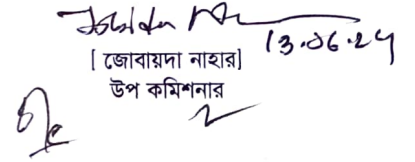 13.06.24
[ জোবায়দা নাহার]
উপ কমিশনার